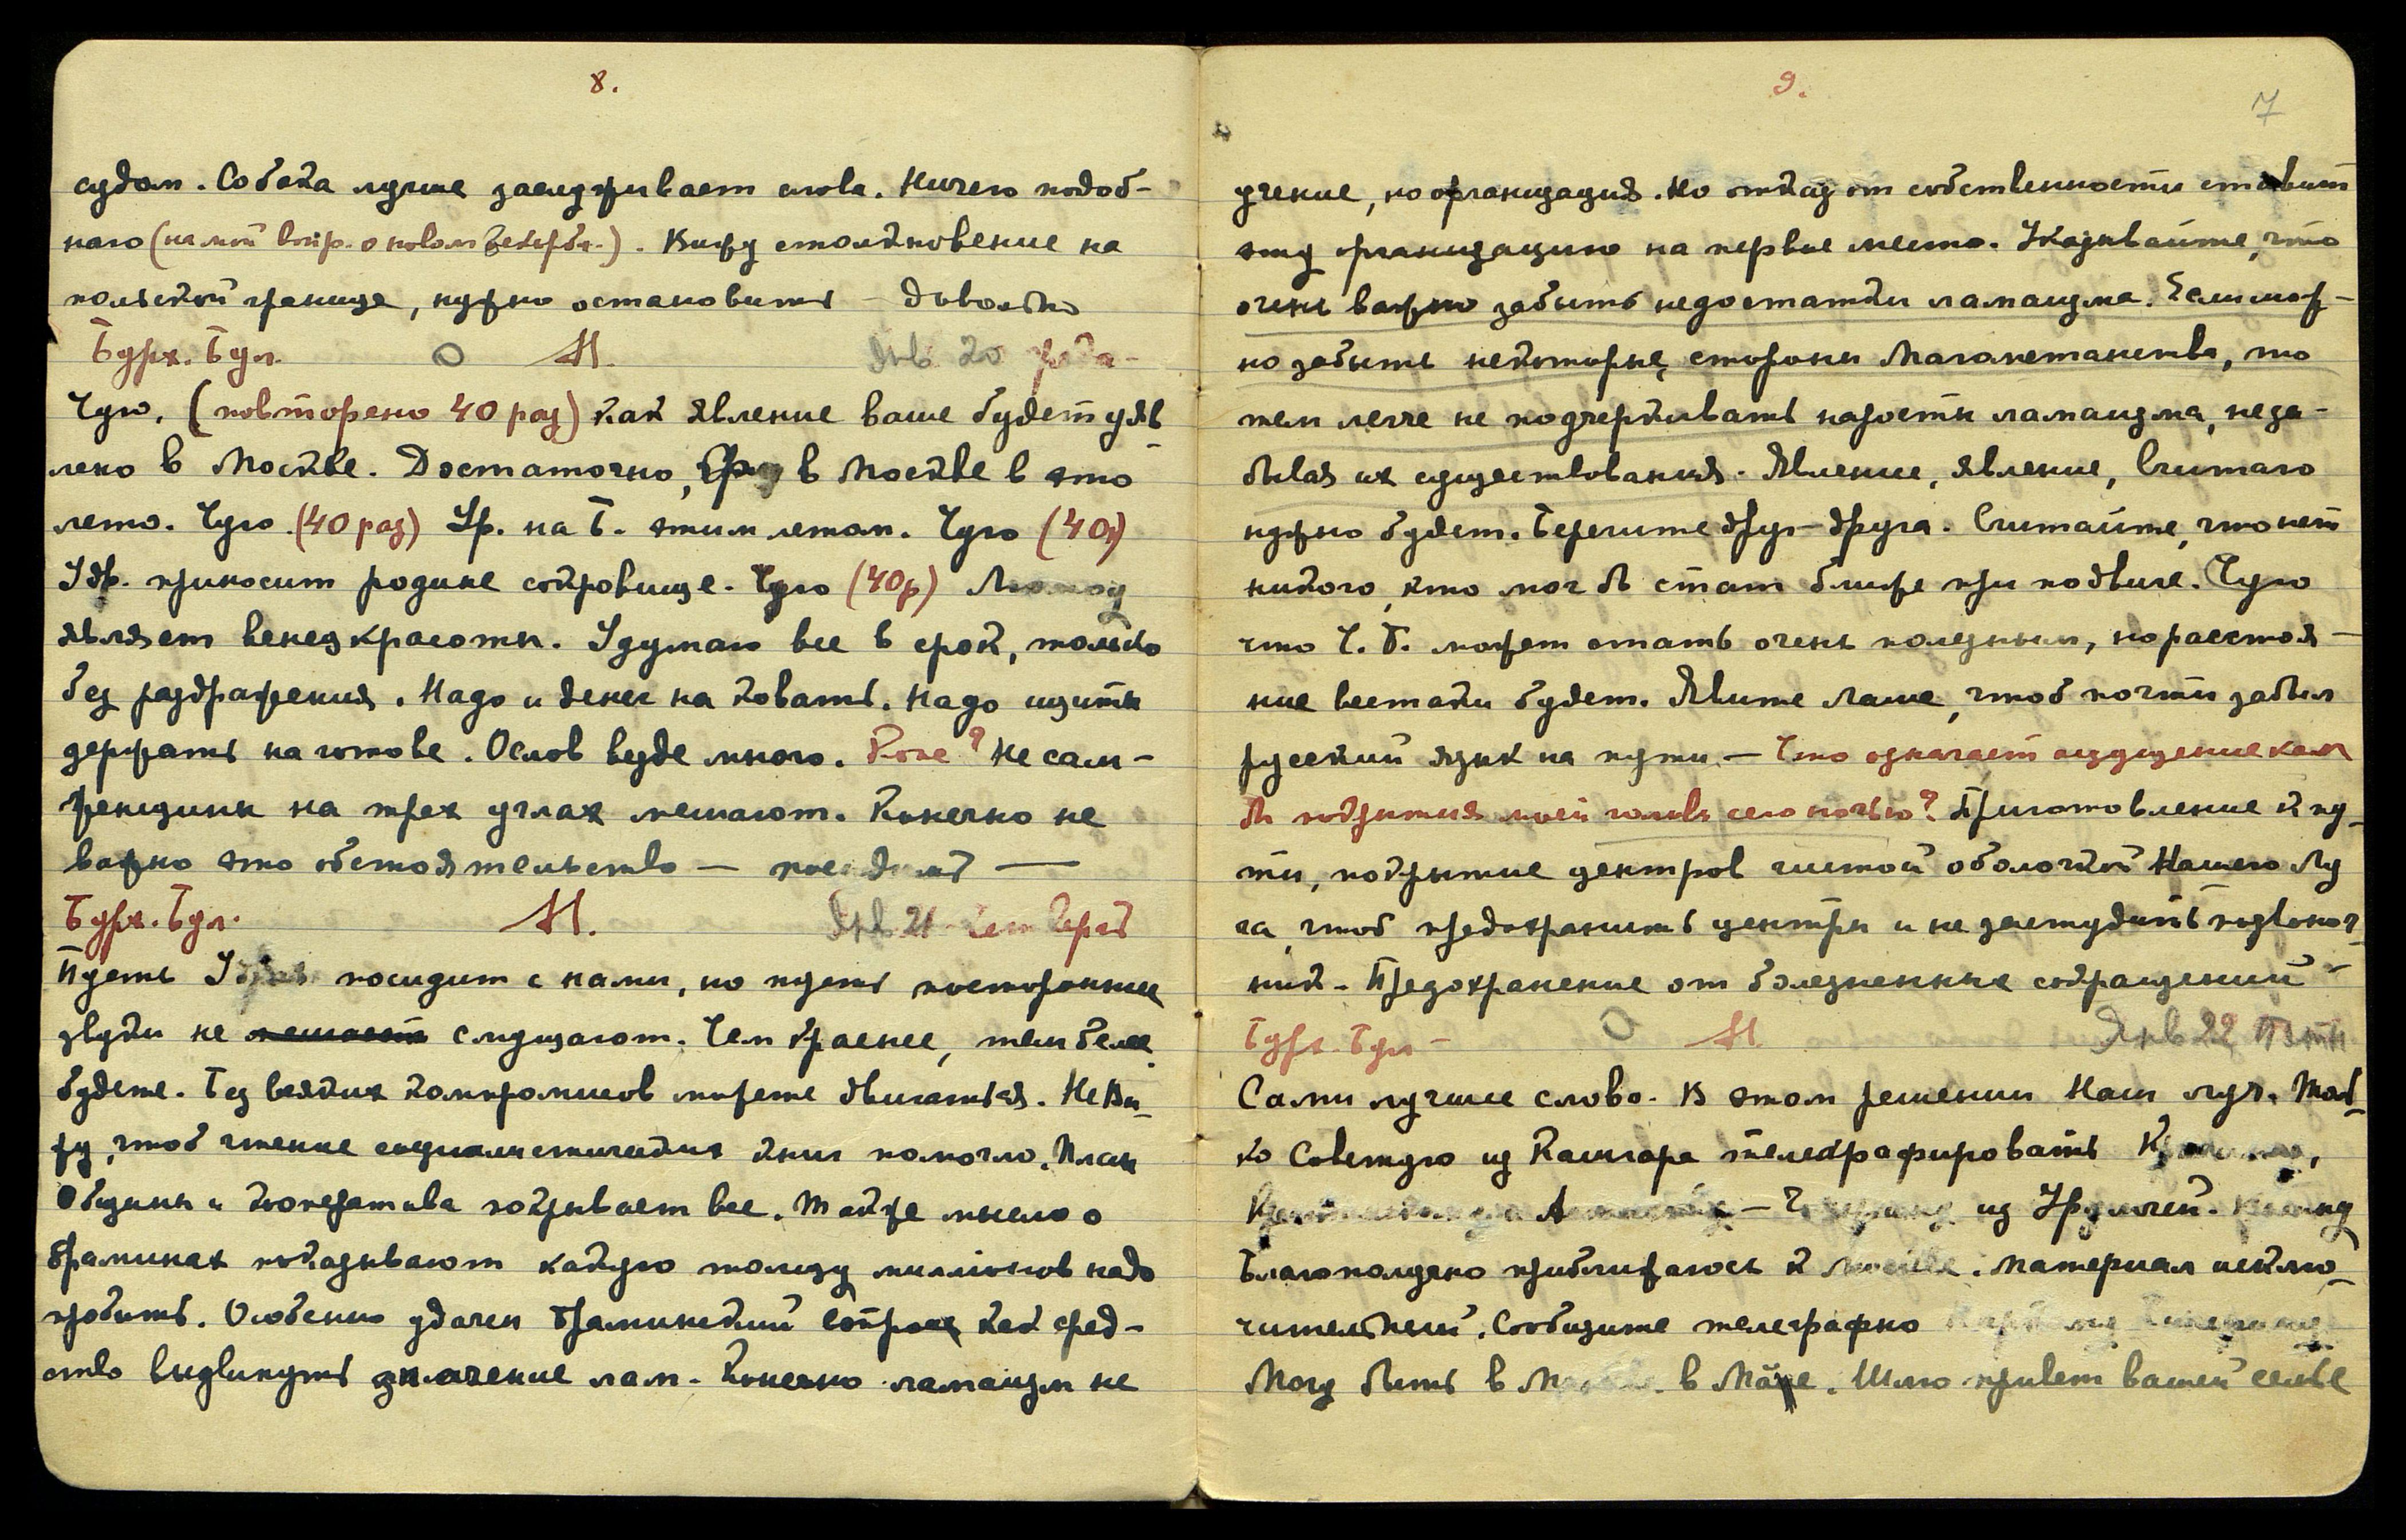 8.
судом. Собака лучше заслуживает слова. Ничего подоб-
наго (на мой вопр. о новом). Вижу столкновение на
польской границе, нужно остановить – довольно
Бурх. Бул. О М. Янв 20
Чую, (повторено 40 раз) как явление ваше будет уяв
лено в Москве. Достаточно, в Москве в это
лето. Чую (40 раз) Ур. на Б. этим летом. Чую (40р)
Удр. приносит родине сокровище. Чую (40р) Люмоу
являет венец красоты. Удумаю все в срок, только
без раздражения. Надо и денег на ковать. Надо щиты
держать на готове. Ослов везде много. Роке? Не сам –
женщины на трех углах мешают. Конечно не
важно это обстоятельство —
Бурх. Бул. М. Янв 21 – Четверг
Пусть посидит с нами, но пусть посторонние
звуки не мешают смущают. Чем краснее, тем белее
будете. Без всяких компромисов можете двигаться. Не ви-
жу, чтоб чтение социалистических книг помогло. План
Общины и кооператива покрывает все. Также мысли о
браминах показывают какую толщу миллионов надо
пробить. Особенно удачен Браминский вопрос как сред-
ство выдвинуть значение лам. Конечно ламаизм не
9.
7
учение, но организация. Но отказ от собственности ставит
эту организацию на первое место. Указывайте, что
очень важно забыть недостатки ламаизма. Если мож-
но забыть некоторые стороны Магометанства, то
тем легче не подчеркивать наросты ламаизма, неза-
бывая их существования. Явление, явление, считаю
нужно будет. Берегите друг-друга. Считайте, что нет
никого, кто мог бы стат ближе при подвиге. Чую
что Ч. Б. может стать очень полезным, но расстоя-
ние всетаки будет. Явите Лаше, чтоб почти забыл
русский язык на пути — Что означает ощущение как
бы покрытия моей головы сего ночью? Приготовление к пу-
ти, покрытие центров чистой оболочкой Нашего Лу
ча, чтоб предохранить центры и не застудить позвоноч-
ник. Предохранение от болезненных сокращений –
Бурх. Бул – О М. Янв 22 Пятн
Сами лучшее слово. В этом решении Наш луч. Толь-
ко Советую из Кашгара телеграфировать
— из Урумчей.
Благополучно приближаюсь к Москве. Материал исклю-
чительный. Сообщите телеграфно
Могу быть в в Мае. Шлю привет вашей семье